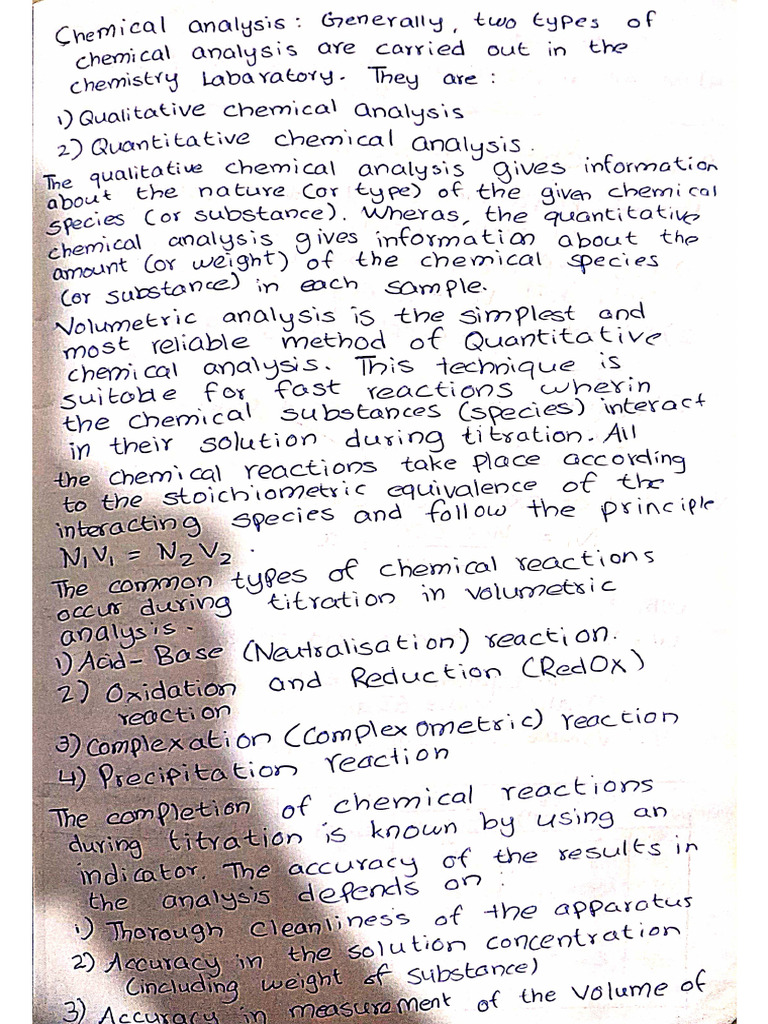 Chemical analysis: Generally, two types of
chemical analysis are carried out in the
chemistry Labaratory. They are :
1) Qualitative chemical analysis
2) Quantitative chemical analysis.
The qualitative chemical analysis gives information
about the nature (or type) of the given chemical
species (or substance). Wheras, the quantitative
chemical analysis gives information about the
amount (or weight) of the chemical species
(or substance) in each sample.
Volumetric analysis is the simplest and
most reliable method of Quantitative
chemical analysis. This technique is
suitable for fast reactions wherin
the chemical substances (species) interact
in their solution during titration. All
the chemical reactions take place according
to the stoichiometric equivalence of the
interacting species and follow the principle
N₁V₁ = N₂V₂.
The common types of chemical reactions
occur during titration in volumetric
analysis.
1) Acid-Base (Neutralisation) reaction.
2) Oxidation and Reduction (RedOx)
reaction
3) Complexation (Complexometric) reaction
4) Precipitation reaction
The completion of chemical reactions
during titration is known by using an
indicator. The accuracy of the results in
the analysis depends on :
1) Thorough Cleanliness of the apparatus
2) Accuracy in the solution concentration
(including weight of substance)
3) Accuracy in measurement of the volume of